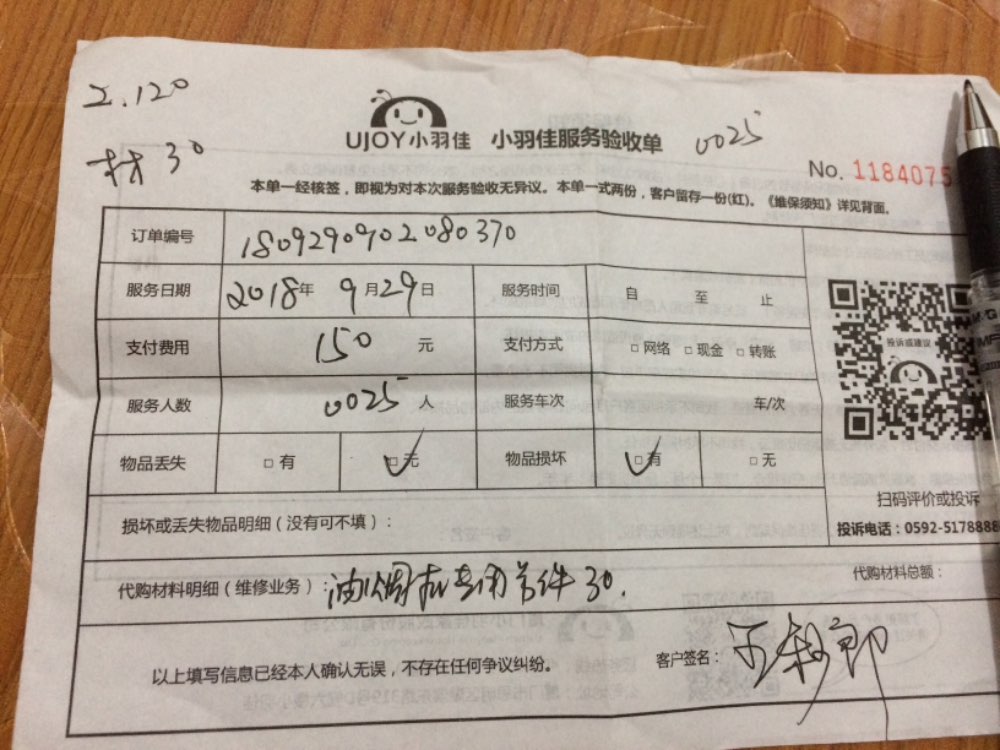 工.120
材 30
UJOY小羽佳 小羽佳服务验收单 0025
No. 1184075
本单一经核签，即视为对本次服务验收无异议。本单一式两份，客户留存一份(红)。《维保须知》详见背面。
订单编号 1809290902080370
服务日期 2018年 9月29日 服务时间 自 至 止
支付费用 150 元 支付方式 □网络 □现金 □转账
服务人数 0025 人 服务车次 车/次
物品丢失 □有 □无 物品损坏 □有 □无
投诉或建议
扫码评价或投诉
损坏或丢失物品明细（没有可不填）：
投诉电话：0592-5178888
代购材料明细（维修业务）：油烟机专用管件30.
代购材料总额：
以上填写信息已经本人确认无误，不存在任何争议纠纷。
客户签名：